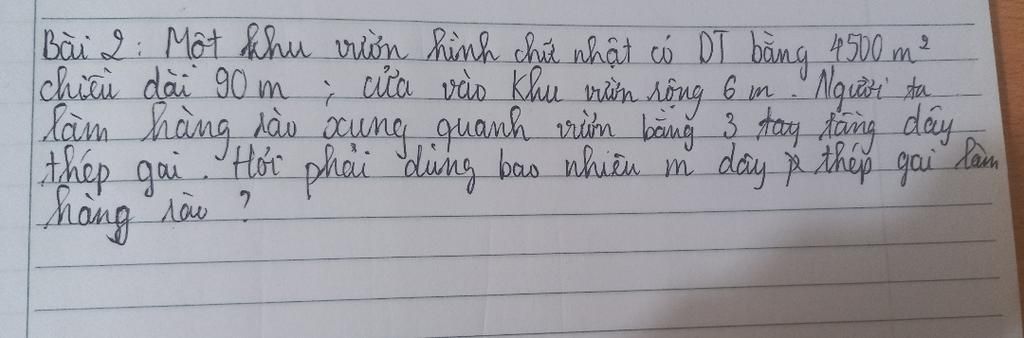 Bài 2: Một khu vườn hình chữ nhật có DT bằng 4500 m²
chiều dài 90 m ; cửa vào khu vườn rộng 6 m. Người ta
làm hàng rào xung quanh vườn bằng 3 tay tầng dây
thép gai. Hỏi phải dùng bao nhiêu m dây thép gai làm
hàng rào ?